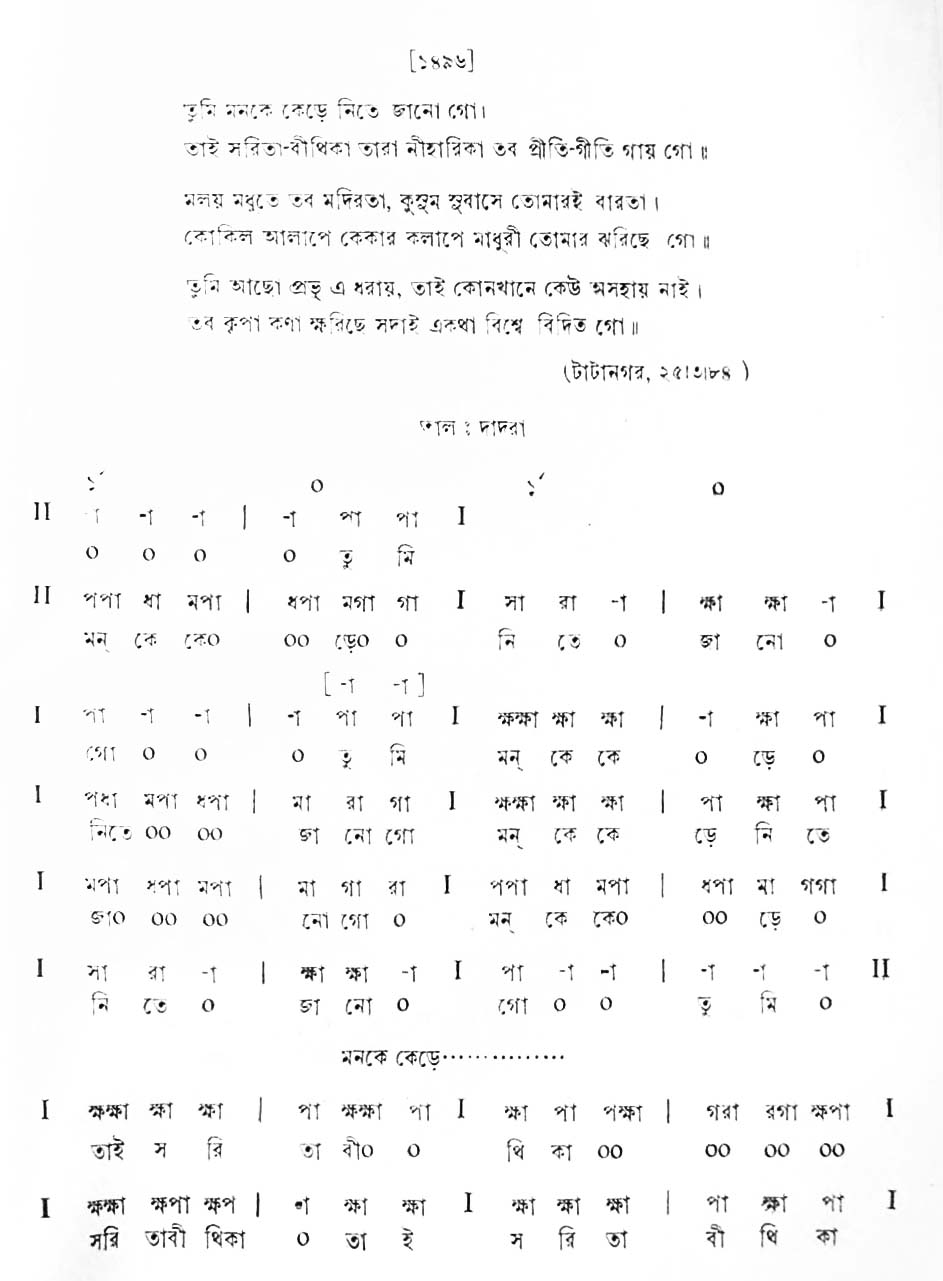 [১৪৯৬]
তুমি মনকে কেড়ে নিতে জানো গো।
তাই সরিতা-বীথিকা তারা নীহারিকা তব প্রীতি-গীতি গায় গো॥
মলয় মধুতে তব মদিরতা, কুসুম সুবাসে তোমারই বারতা।
কোকিল আলাপে কেকার কলাপে মাধুরী তোমার ঝরিছে গো॥
তুমি আছো প্রভু এ ধরায়, তাই কোনখানে কেউ অসহায় নাই।
তব কৃপা কণা ক্ষরিছে সদাই একথা বিশ্বে বিদিত গো॥
(টাটানগর, ২৫।৩।৮৪ )
তাল : দাদরা
১´ ০ ১´ ০
II -া -া -া | -া পা পা I
০ ০ ০ ০ তু মি
II পপা ধা মপা | ধপা মগা গা I সা রা -া | ক্ষা ক্ষা -া I
মন্ কে কে০ ০০ ড়ে০ ০ নি তে ০ জা নো ০
[ -া -া ]
I পা -া -া | -া পা পা I ক্ষক্ষা ক্ষা ক্ষা | -া ক্ষা পা I
গো ০ ০ ০ তু মি মন্ কে কে ০ ড়ে ০
I পধা মপা ধপা | মা রা গা I ক্ষক্ষা ক্ষা ক্ষা | পা ক্ষা পা I
নিতে ০০ ০০ জা নো গো মন্ কে কে ড়ে নি তে
I মপা ধপা মপা | মা গা রা I পপা ধা মপা | ধপা মা গগা I
জা০ ০০ ০০ নো গো ০ মন্ কে কে০ ০০ ড়ে ০
I সা রা -া | ক্ষা ক্ষা -া I পা -া -া | -া -া -া II
নি তে ০ জা নো ০ গো ০ ০ তু মি ০
মনকে কেড়ে···············
I ক্ষক্ষা ক্ষা ক্ষা | পা ক্ষক্ষা পা I ক্ষা পা পক্ষা | গরা রগা ক্ষপা I
তাই স রি তা বী০ ০ থি কা ০০ ০০ ০০ ০০
I ক্ষক্ষা ক্ষপা ক্ষপ | -া ক্ষা ক্ষা I ক্ষা ক্ষা ক্ষা | পা ক্ষা পা I
সরি তাবী থিকা ০ তা ই স রি তা বী থি কা